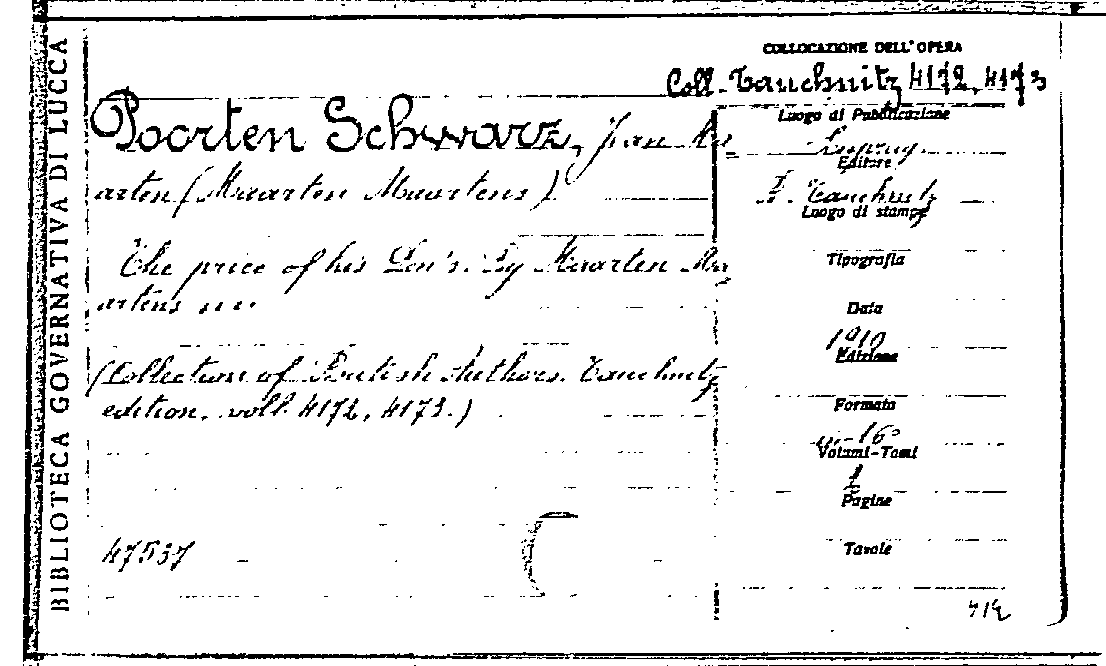 BIBLIOTECA GOVERNATIVA DI LUCCA
COLLOCAZIONE DELL'OPERA
Coll. Tauchnitz 4172, 4173
Poorten Schwarz, Jean Ma
arten (Maarten Maartens)
The price of his By Maarten Ma
artens
(Collection of British Authors. Tauchnitz
edition. voll. 4172, 4173.)
47537
Luogo di Pubblicazione
Editore
Tauchnitz
Luogo di stampa
Tipografia
Data
1910
Edizione
Formato
in-16°
Volumi-Tomi
Pagine
Tavole